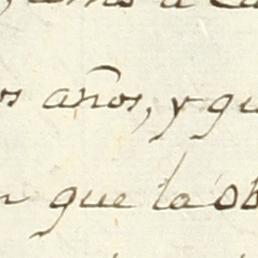 os años, y qu
n que la ob